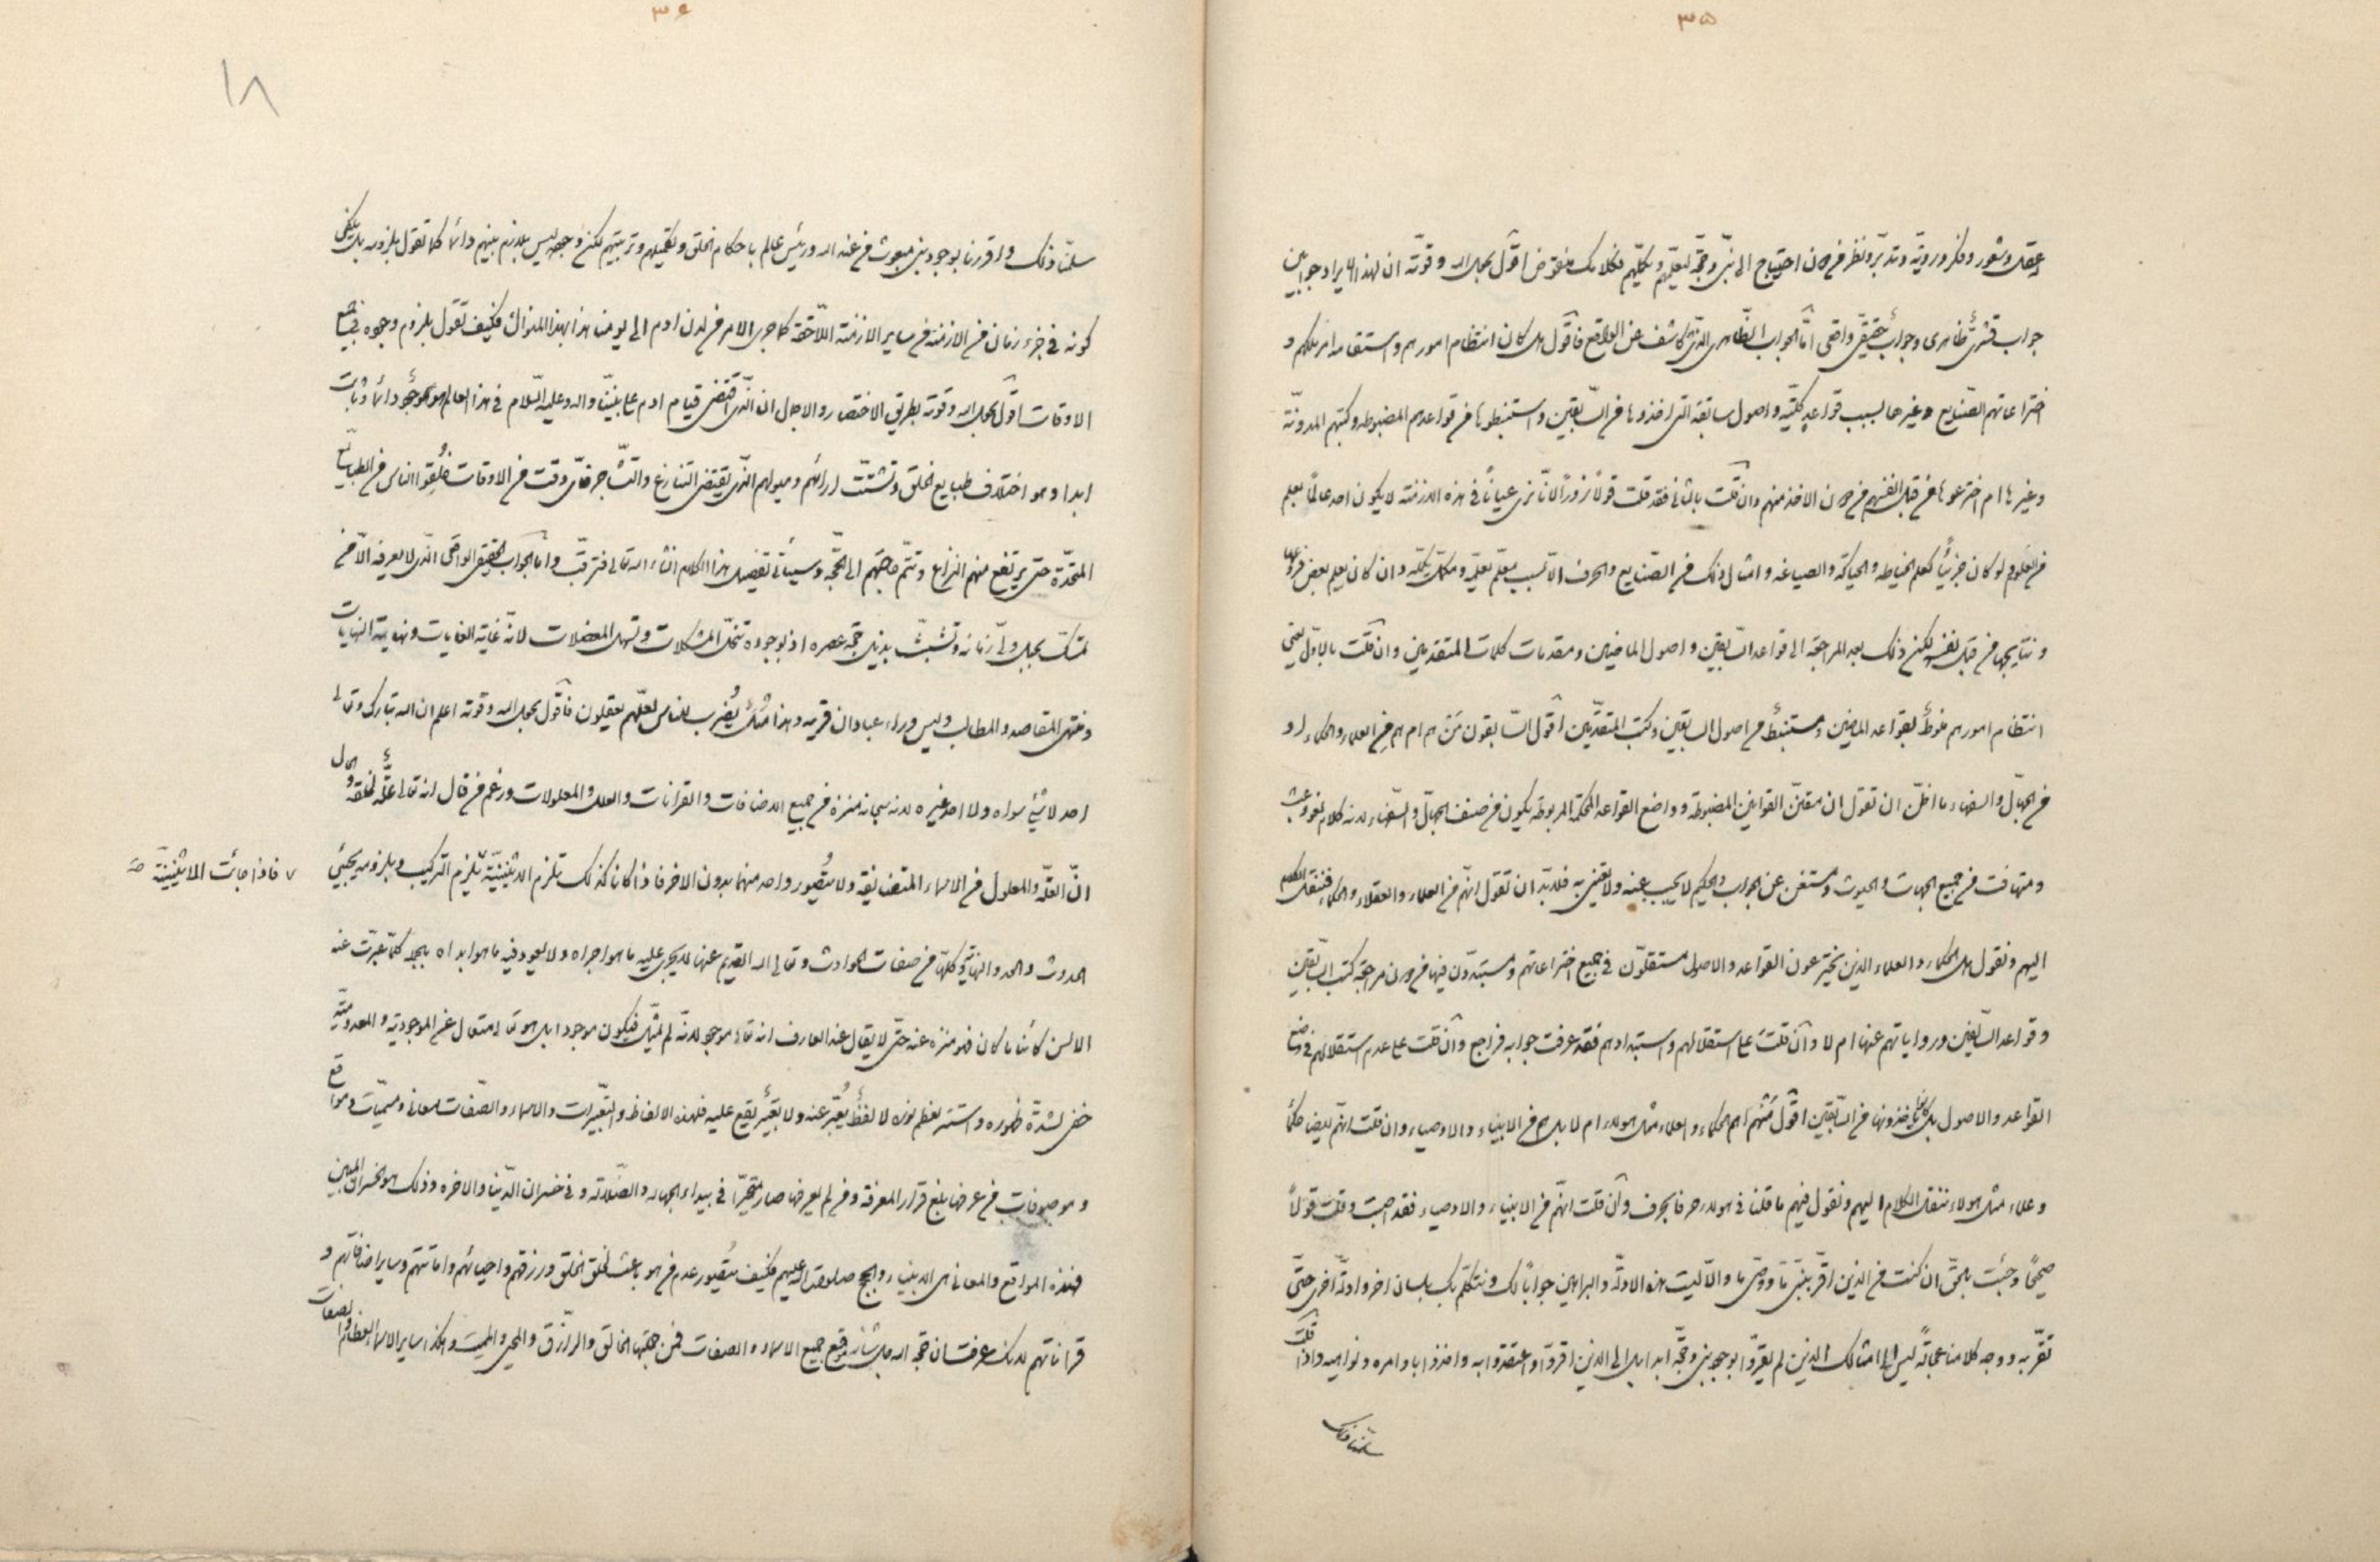 ٣۵
عقل وشعور وفكر وروية وتدبر ونظر من دون احتياج الى نبي وحجة ليعلمهم ويكملهم فكلامك منقوض اقول بحول الله وقوته ان لهذا الايراد جوابين
جواب قشري ظاهري وجواب حقيقي واقعي اما الجواب الظاهري الذي كاشف عن الواقع فاقول هل كان انتظام امورهم واستقامة امر ملكهم و
اختراعاتهم الصنايع وغيرها بسبب قواعد كلية واصول سابقة التي اخذوها من السابقين واستنبطوها من قواعدهم المضبوطة وكتبهم المدونة
وغيرها ام اخترعوها من قبل انفسهم من دون الاخذ منهم وان قلت بالثاني فقد قلت قولا زورا لانا نرى عيانا في هذه الازمنة لا يكون احد عالما بعلم
من العلوم لو كان جزئيا كعلم الخياطة والحياكة والصياغة وامثال ذلك من الصنايع والحرف الا بسبب معلم يعلمه ومكمل يكمله وان كان يعلم بعض فروعها
ونتايجها من قبل نفسه لكن ذلك بعد المراجعة الى قواعد السابقين واصول الماضين ومقدمات كلمات المتقدمين وان قلت بالاول يعني
انتظام امورهم منوط بقواعد الماضين ومستنبط من اصول السابقين وكتب المتقدمين اقول السابقون من هم ام هم من العلماء والحكماء او
من الجهال والسفهاء ما اظن ان تقول ان مقنن القوانين المضبوطة وواضع القواعد المحكمة المربوطة يكون من صنف الجهال والسفهاء لانه كلام لغو وعبث
ومتهافت من جميع الجهات والحيوث ومستغن عن الجواب والحكيم لا يجيب عنه ولا يعتني به فلابد ان تقول انهم من العلماء والعقلاء والحكماء فننقل الكلام
اليهم ونقول هل الحكماء والعلماء الذين يخترعون القواعد والاصول مستقلون في جميع اختراعاتهم ومستبدون فيها من دون مراجعة كتب السابقين
وقواعد السابقين ورواياتهم عنها ام لا وان قلت على استقلالهم واستبدادهم فقد عرفت جوابه فراجع وان قلت على عدم استقلالهم في وضع
القواعد والاصول بل كانوا ياخذونها من السابقين اقول منهم اهم الحكماء والعلماء مثل هولاء ام لا بل هم من الانبياء والاوصياء وان قلت انهم ايضا حكماء
وعلماء مثل هولاء ننقل الكلام اليهم ونقول فيهم ما قلنا في هولاء حرفا بحرف وان قلت انهم من الانبياء والاوصياء فقد اصبت وقلت قولا
صحيحا وجئت بالحق ان كنت من الذين اقر بنبي ما ووصي ما والا ليت هذه الادلة والبراهين جوابا لك ونتكلم بك بلسان اخر وادلة اخرى حتى
تقر به ووجه كلامنا عجالة ليس الى امثالك الذين لم يقروا بوجود نبي وحجة ابدا بل الى الذين اقروا واعتقدوا به واخذوا باوامره ونواهيه واذا قلت
سلمنا ذلك
٣۶
١٨
سلمنا ذلك واقررنا بوجود نبي مبعوث من عند الله ورئيس عالم باحكام الخلق وتكميلهم وتربيتهم لكن وجوده ليس بلازم بينهم دائما كما تقول بلزومه بل يكفي
كونه في جزء زمان من الازمنة في ساير الازمنة اللاحقة كما جرى الامر من لدن ادم الى يومنا هذا بهذا المنوال فكيف تقول بلزوم وجوده في جميع
الاوقات اقول بحول الله وقوته بطريق الاختصار والاجمال ان الذي اقتضى قيام ادم على نبينا واله وعليه السلام في هذا العالم هو موجود دائما وثابت
ابدا وهو اختلاف طبايع الخلق وتشتت ارائهم وميولهم الذي يقتضي التنازع والتشاجر فاي وقت من الاوقات خلقوا الناس من الطبايع
المتحدة حتى يرتفع منهم النزاع وتتم حاجتهم الى الحجة وسياتي تفصيل هذا الكلام انشاء الله تعالى فترقب واما الجواب الحقيقي الواقعي الذي لا يعرفه الا من
تمسك بحبل ولي زمانه وتشبث بذيل حجة عصره اذ بوجوده تنحل المشكلات وتسهل المعضلات لانه غاية الغايات ونهاية النهايات
ومنتهى المقاصد والمطالب وليس وراء عبادان قرية وهذا مثل يضرب للناس لعلهم يعقلون فاقول بحول الله وقوته اعلم ان الله تبارك وتعالى
احد لا شيء سواه ولا احد غيره لانه سبحانه منزه من جميع الاضافات والقرانات والعلل والمعلولات وزعم من قال انه تعالى علة لخلقه والحال
ان العلة والمعلول من الاسماء المتضايفة ولا يتصور واحد منهما بدون الاخر فاذا كان كذلك تلزم الاثنينية يلزم التركيب وبلزومه يجيئ
فاذا جائت الاثنينية صح
الحدوث والحد والنهاية كلها من صفات الحوادث وتعالى الله القديم عنها لا يجري عليه ما هو اجراه ولا يعود فيه ما هو ابداه بجد كلما عبرت عنه
الالسن كائنا ما كان فهو منزه عنه حتى لا يقال عند العارف انه تعالى موجود لانه لم مثبت فيكون موجودا بل هو تعالى متعال عن الموجودية والمعدومية
خفي لشدة ظهوره واستتر لعظم نوره لا لفظ يعبر عنه ولا بتعبير يقع عليه فلهذه الالفاظ والتعبيرات والاسماء والصفات لمعاني ومسميات ومواقع
وموصوفات من عرفها بلغ قرار المعرفة ومن لم يعرفها صار متحيرا في بيداء الجهالة والضلالة وفي خسران الدنيا والاخرة وذلك هو الخسران المبين
فهذه المواقع والمعاني هي الانبياء والحجج صلوات الله عليهم فكيف يتصور عدم من هو باعث لخلق الخلق ورزقهم واحيائهم واماتتهم وساير اضافاتهم و
قراناتهم لانك عرفت ان حجة الله جل شانه موقع جميع الاسماء والصفات فمن جهتها الخالق والرازق والمحيي والمميت وهكذا ساير الاسماء العظام والصفات